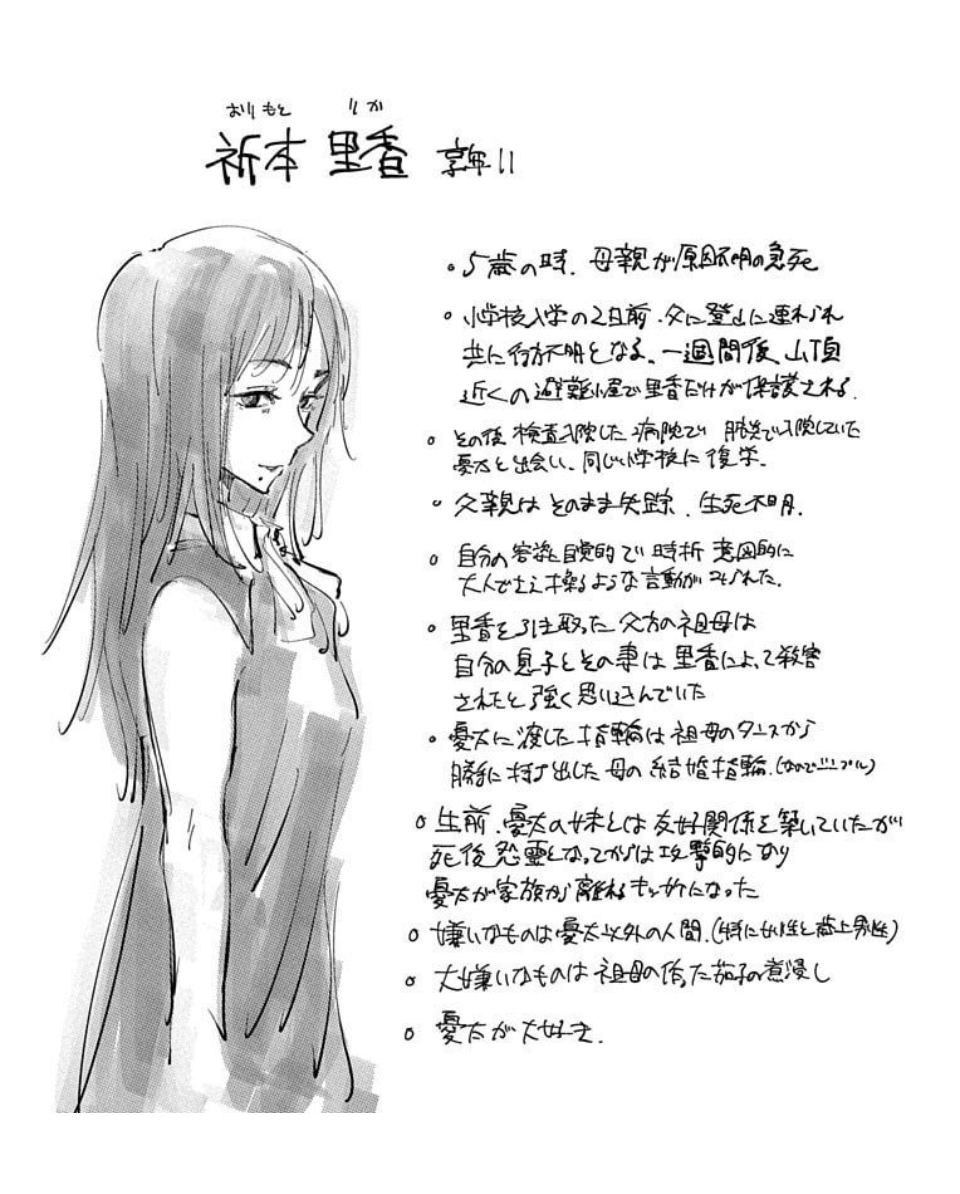 おりもと りか
祈本 里香 享年11
。5歳の時、母親が原因不明の急死
。小学校入学の2日前、父に登山に連れられ
共に行方不明となる、一週間後、山頂
近くの避難小屋で里香だけが保護される。
。その後検査入院した病院で、肺炎で入院していた
憂太と出会い、同じ小学校に復学。
。父親はそのまま失踪、生死不明。
。自分の容姿に自覚的で、時折意図的に
大人でさえ操るような言動がみられた。
。里香を引き取った父方の祖母は
自分の息子とその妻は里香によって殺害
されたと強く思い込んでいた
。憂太に渡した指輪は祖母のタンスから
勝手に持ち出した母の結婚指輪。(なのでシンプル)
。生前、憂太の妹とは友好関係を築いていたが
死後怨霊となってからは攻撃的になり
憂太が家族から離れるキッカケになった
。嫌いなものは憂太以外の人間。(特に女性と歳上男性)
。大嫌いなものは祖母の作った茄子の煮浸し
。憂太が大好き。